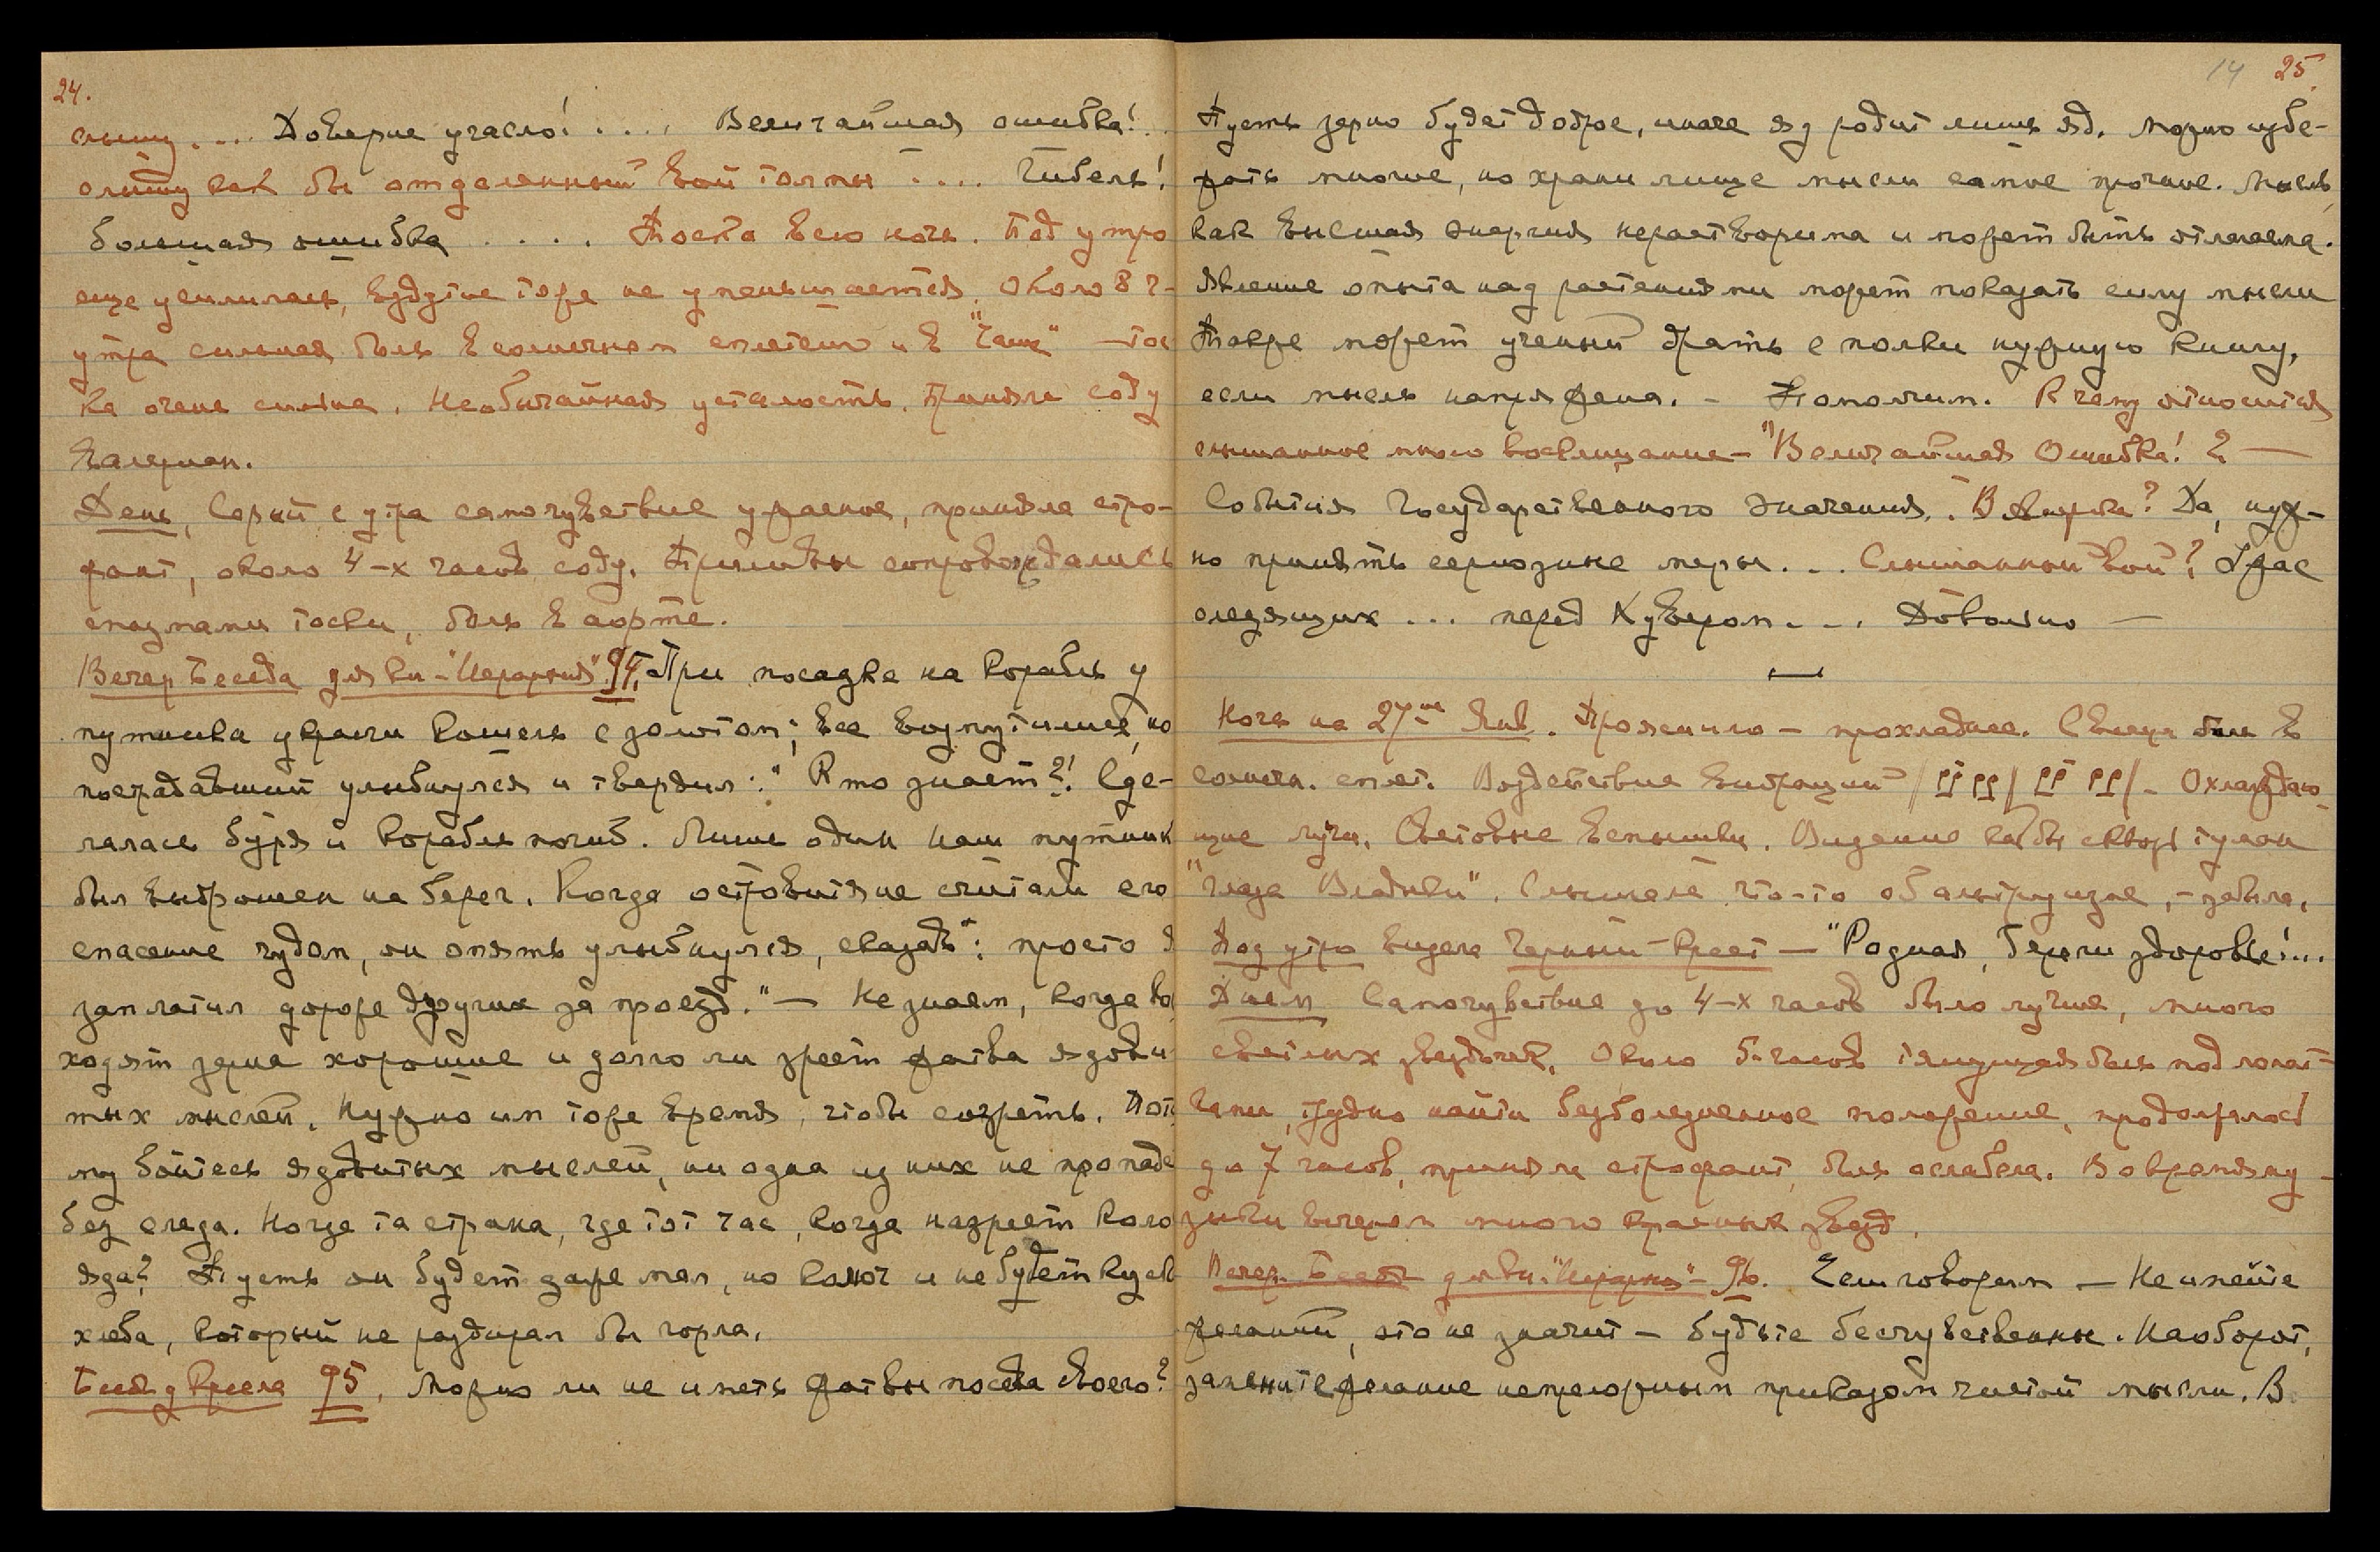 24.
слышу .... Доверие угасло! .... Величайшая ошибка! ..
слышу как бы отдаленный вой толпы .... Гибель!
большая ошибка ..... Тоска всю ночь. Под утро
еще усилилась, воздухе тоже не уменьшается. Около 8 ч.
утра сильная боль в солнечном сплетении и в "Чаше" — тос
ка очень сильна. Необычайная усталость. Приняла соду
Валериан.
День, Серый с утра самочувствие ужасное, приняла стро-
фант, около 4-х часов соду. Приливы сопровождались
спазмами тоски, боль в аорте.
Вечер Беседа для кн. "Иерархия" 94. При посадке на корабль у
путника украли кошель с золотом; все возмутились, но
пострадавший улыбнулся и твердил: "Кто знает?! Сде-
лалась буря и корабль погиб. Лишь один наш путник
был выброшен на берег. Когда островитяне считали его
спасение чудом, он опять улыбнулся, сказав: "просто я
заплатил дороже других за проезд." — Не знаем, когда вс
ходят зерна хорошие и долго ли зреет жатва ядови
тых мыслей. Нужно им тоже время, чтобы созреть. Пото
му бойтесь ядовитых мыслей, ни одна из них не пропаде
без следа. Когда та страна, где тот час, когда назреет коло
яда? Пусть он будет даже мал, но колюч и не будет куск
хлеба, который не раздирал бы горла.
Беседа 95. Можно ли не иметь жатвы посева своего?
14 25
Пусть зерно будет доброе, иначе яд родит лишь яд. Можно избе-
жать многое, но хранилище мысли самое прочное. Мысль,
как высшая энергия нерастворима и может быть отлагаема.
Явление опыта над растениями может показать силу мысли
Также может ученый брать с полки нужную книгу,
если мысль напряжена. - Помолчим. К чему относится
слышанное мною восклицание - "Величайшая Ошибка! ? —
События Государственного Значения. . В Америке? Да, нуж-
но принять серьозные меры. .. Слышанный вой? Глас
следящих ... перед Хувером ... Довольно —
Ночь на 27ое Янв. Прояснило — прохладнее. Слегка боль в
солнечн. сплет. Воздействие вибраций — Охлаждаю-
щие лучи. Световые вспышки. Видение как бы сквозь туман
"глаза Владыки". Слышала что-то об альтруизме, — забыла.
Под утро видела Черный Крест — "Родная, береги здоровье!...
Днем Самочувствие до 4-х часов было лучше, много
светлых звездочек. Около 5 часов тянущая боль под лопат-
ками, трудно найти безболезненное положение, продолжалось
до 7 часов, приняла строфант, боль ослабела. Во время му-
зыки вечером много красных звезд.
Вечер. Беседа для кн. "Иерархия" - 96. Если говорим — Не имейте
желаний, это не значит — будьте бесчувственны. Наоборот,
замените желание непреложным приказом чистой мысли. В